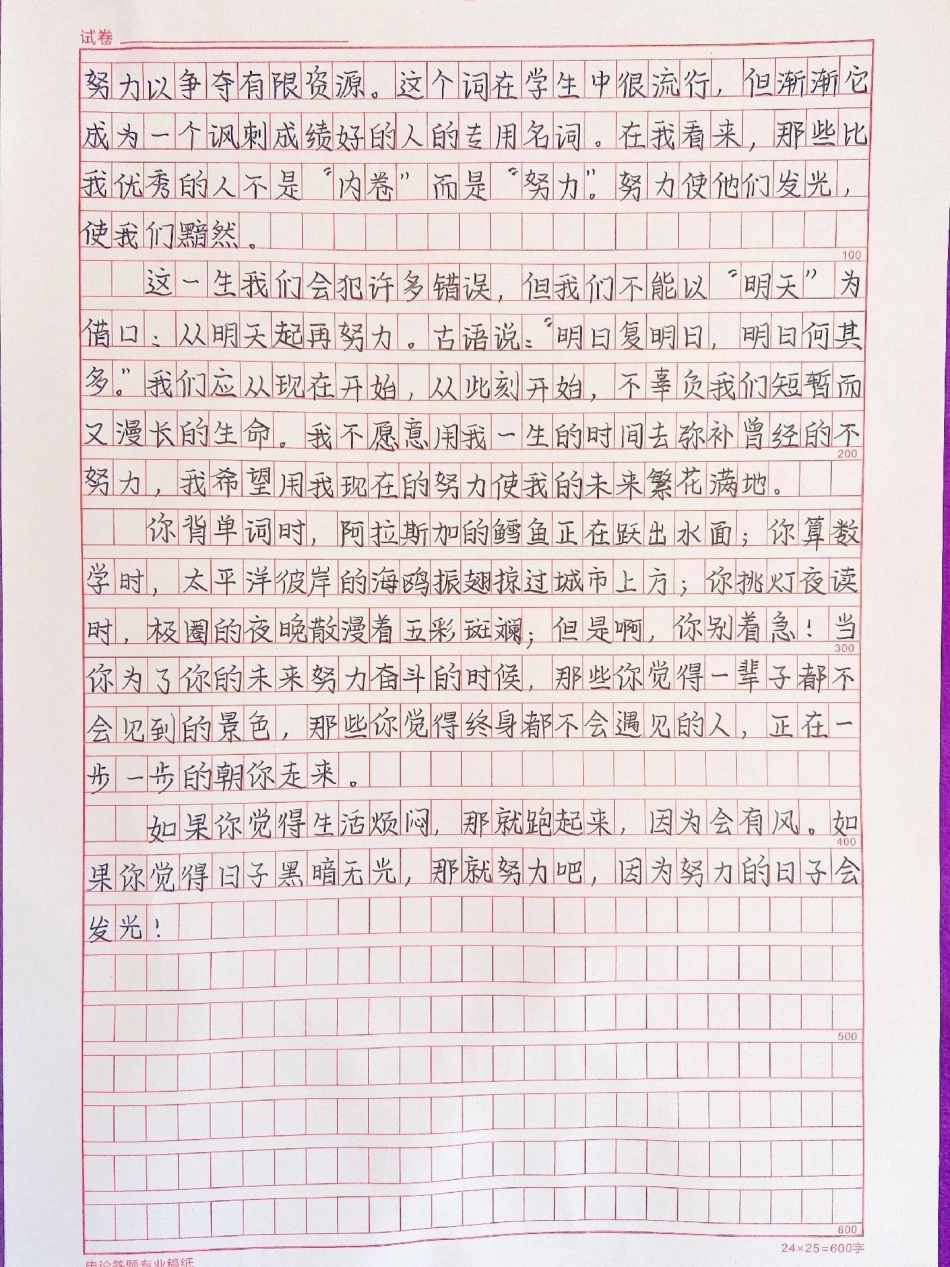 试卷
努力以争夺有限资源。这个词在学生中很流行，但渐渐它
成为一个讽刺成绩好的人的专用名词。在我看来，那些比
我优秀的人不是“内卷”而是“努力”。努力使他们发光，
使我们黯然。
100
这一生我们会犯许多错误，但我们不能以“明天”为
借口：从明天起再努力。古语说：“明日复明日，明日何其
多。”我们应从现在开始，从此刻开始，不辜负我们短暂而
又漫长的生命。我不愿意用我一生的时间去弥补曾经的不
200
努力，我希望用我现在的努力使我的未来繁花满地。
你背单词时，阿拉斯加的鳕鱼正在跃出水面；你算数
学时，太平洋彼岸的海鸥振翅掠过城市上方；你挑灯夜读
时，极圈的夜晚散漫着五彩斑斓；但是啊，你别着急！当
300
你为了你的未来努力奋斗的时候，那些你觉得一辈子都不
会见到的景色，那些你觉得终身都不会遇见的人，正在一
步一步的朝你走来。
如果你觉得生活烦闷，那就跑起来，因为会有风。如
400
果你觉得日子黑暗无光，那就努力吧，因为努力的日子会
发光！
500
600
24×25=600字
申论答题专业稿纸